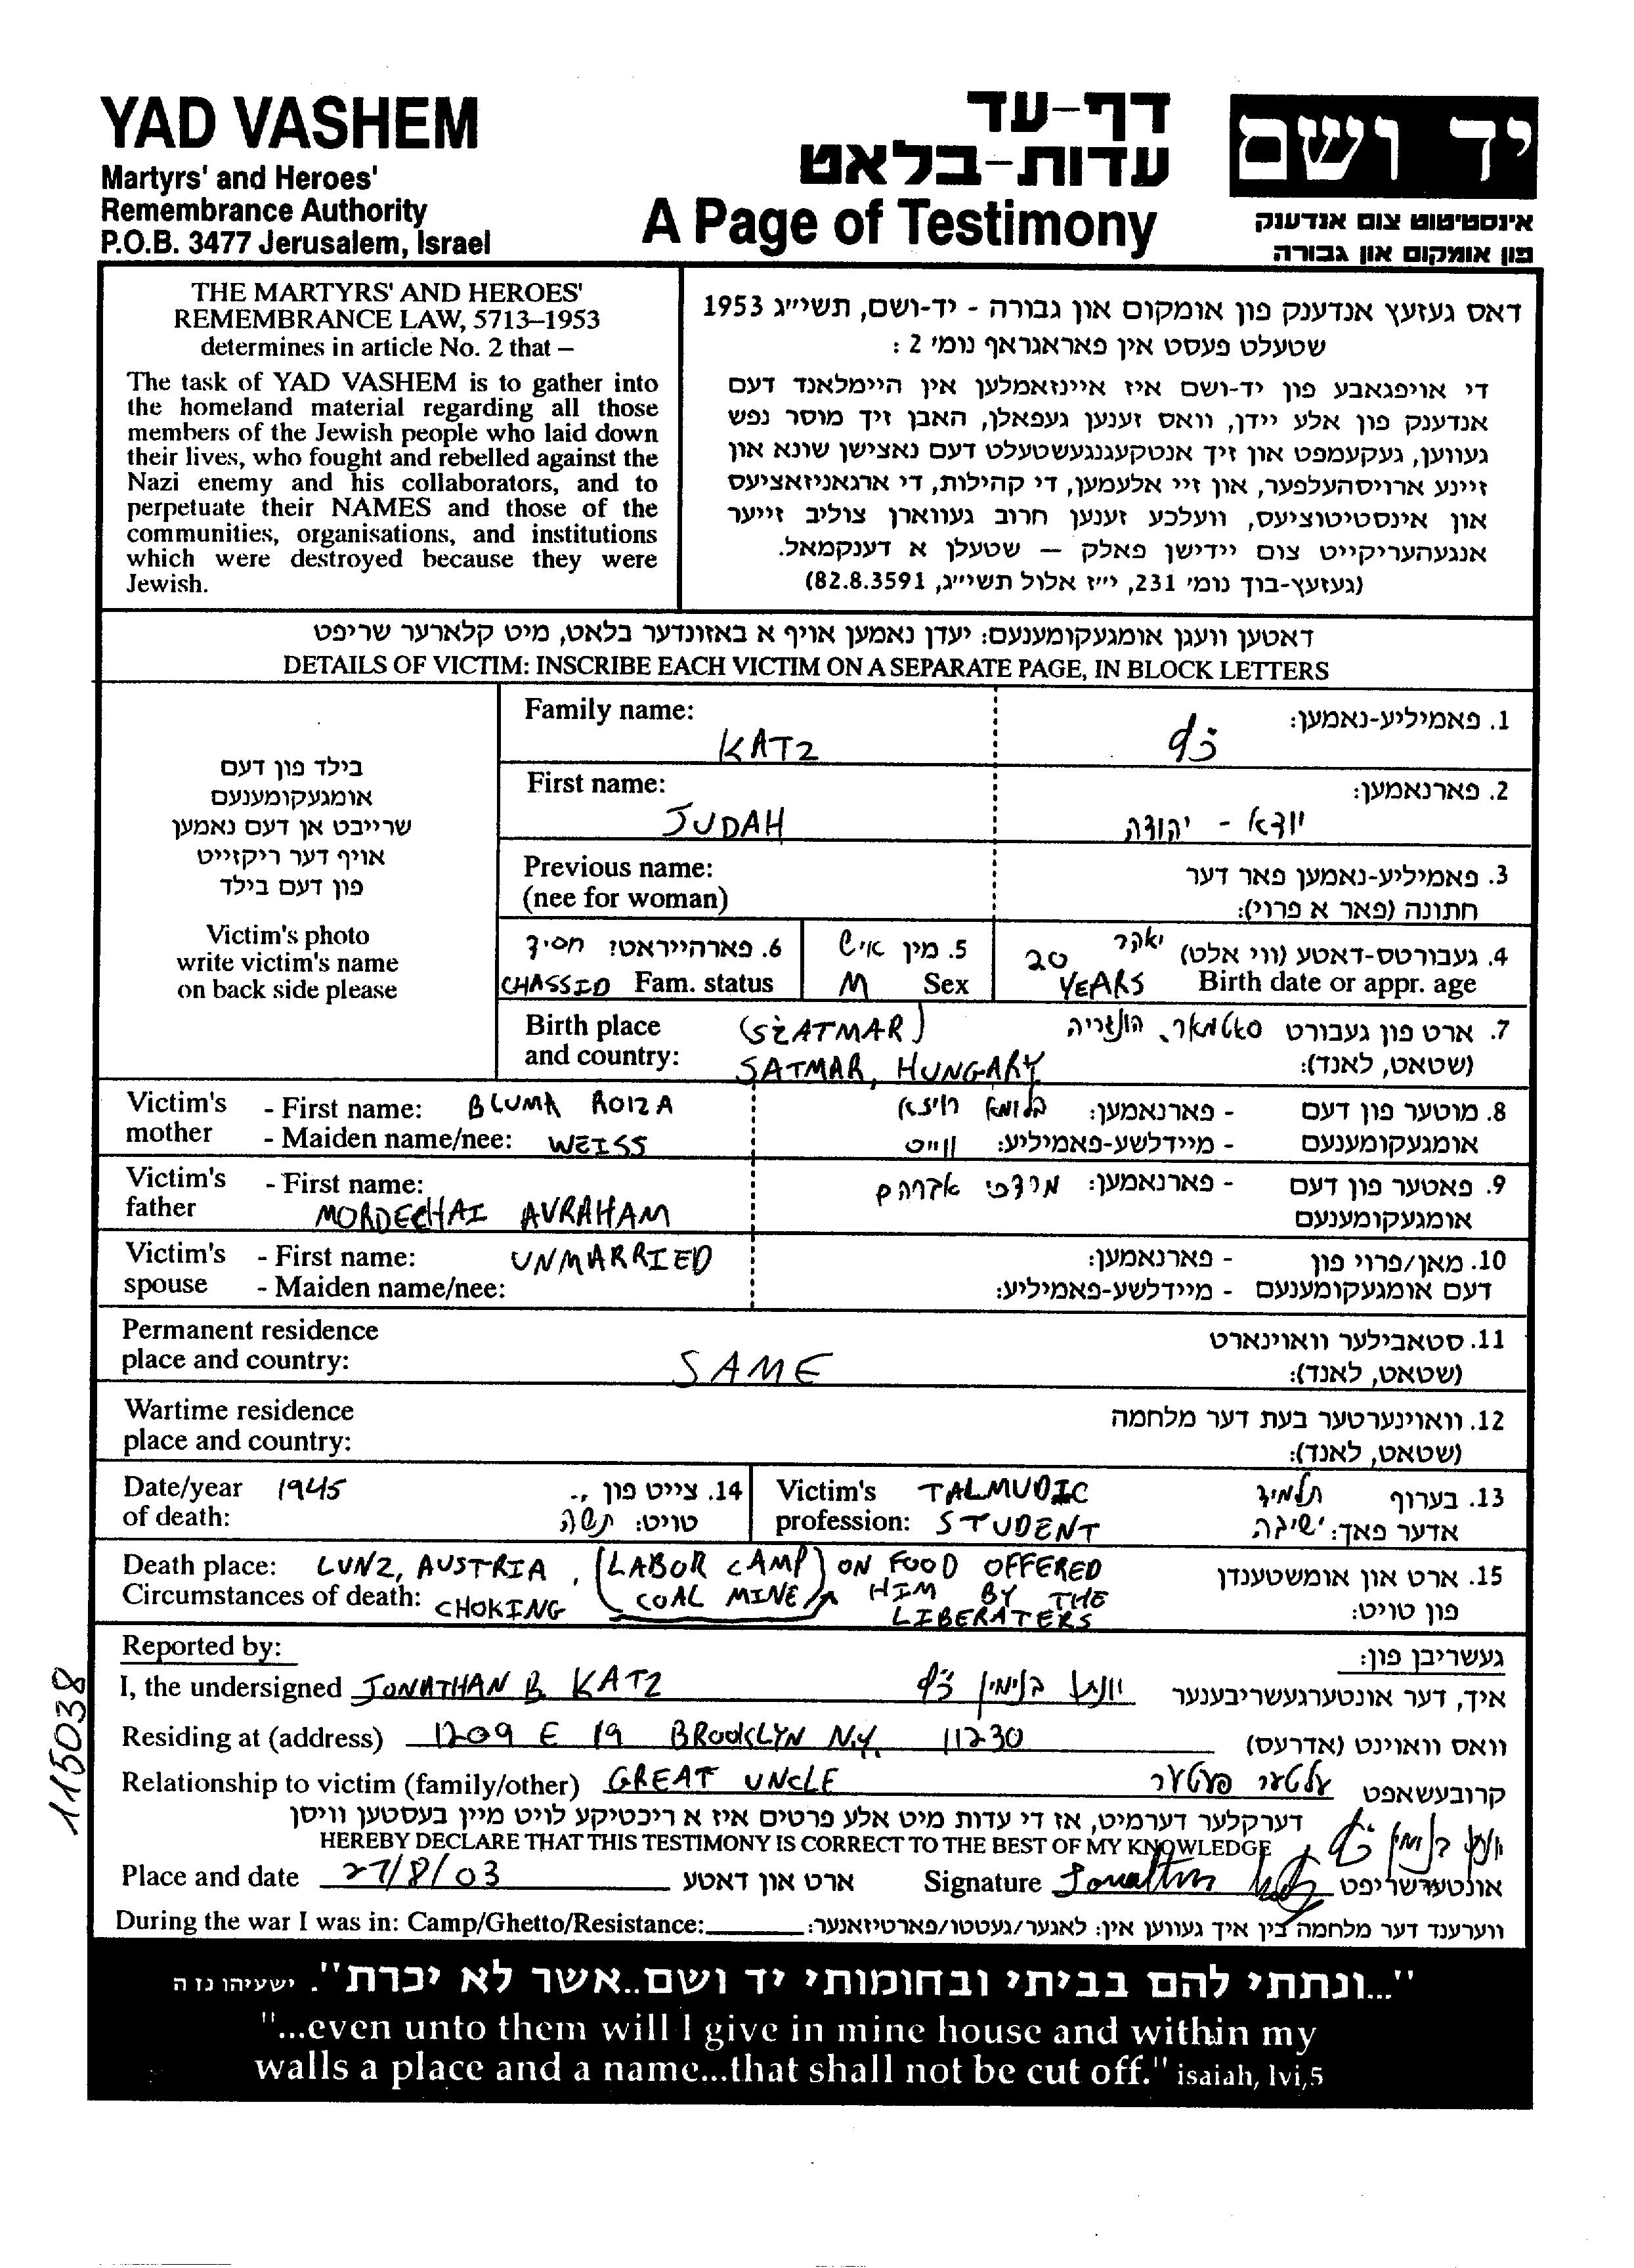 YAD VASHEM
Martyrs' and Heroes'
Remembrance Authority
P.O.B. 3477 Jerusalem, Israel
דף-עד
עדות-בלאט
A Page of Testimony
יד ושם
אינסטיטוט צום אנדענק
פון אומקום און גבורה
THE MARTYRS' AND HEROES'
REMEMBRANCE LAW, 5713–1953
determines in article No. 2 that –
The task of YAD VASHEM is to gather into
the homeland material regarding all those
members of the Jewish people who laid down
their lives, who fought and rebelled against the
Nazi enemy and his collaborators, and to
perpetuate their NAMES and those of the
communities, organisations, and institutions
which were destroyed because they were
Jewish.
דאס געזעץ אנדענק פון אומקום און גבורה - יד-ושם, תשי״ג 1953
שטעלט פעסט אין פאראגראף נומ׳ 2 :
די אויפגאבע פון יד-ושם איז איינזאמלען אין היימלאנד דעם
אנדענק פון אלע יידן, וואס זענען געפאלן, האבן זיך מוסר נפש
געווען, געקעמפט און זיך אנטקעגנגעשטעלט דעם נאצישן שונא און
זיינע ארויסהעלפער, און זיי אלעמען, די קהילות, די ארגאניזאציעס
און אינסטיטוציעס, וועלכע זענען חרוב געווארן צוליב זייער
אנגעהעריקייט צום יידישן פאלק — שטעלן א דענקמאל.
(געזעץ-בוך נומ׳ 231, י״ז אלול תשי״ג, 82.8.3591)
דאטען וועגן אומגעקומענעם: יעדן נאמען אויף א באזונדער בלאט, מיט קלארער שריפט
DETAILS OF VICTIM: INSCRIBE EACH VICTIM ON A SEPARATE PAGE, IN BLOCK LETTERS
בילד פון דעם
אומגעקומענעם
שרייבט אן דעם נאמען
אויף דער ריקזייט
פון דעם בילד
Victim's photo
write victim's name
on back side please
Family name: 1. פאמיליע-נאמען:
KATZ כץ
First name: 2. פארנאמען:
JUDAH יודא - יהודה
Previous name: 3. פאמיליע-נאמען פאר דער
(nee for woman) חתונה (פאר א פרוי):
6. פארהייראט? חסיד 5. מין איש 4. געבורטס-דאטע (ווי אלט) 20 יאהר
CHASSID Fam. status M Sex YEARS Birth date or appr. age
Birth place (SZATMAR) 7. ארט פון געבורט סאטמאר, הונגריה
and country: SATMAR, HUNGARY (שטאט, לאנד):
Victim's - First name: BLUMA ROIZA 8. מוטער פון דעם - פארנאמען: בלומא רויזא
mother - Maiden name/nee: WEISS אומגעקומענעם - מיידלשע-פאמיליע: ווייס
Victim's - First name: 9. פאטער פון דעם - פארנאמען: מרדכי אברהם
father MORDECHAI AVRAHAM אומגעקומענעם
Victim's - First name: UNMARRIED 10. מאן/פרוי פון - פארנאמען:
spouse - Maiden name/nee: דעם אומגעקומענעם - מיידלשע-פאמיליע:
Permanent residence 11. סטאבילער וואוינארט
place and country: SAME (שטאט, לאנד):
Wartime residence 12. וואוינערטער בעת דער מלחמה
place and country: (שטאט, לאנד):
Date/year 1945 14. צייט פון Victim's TALMUDIC 13. בערוף תלמיד
of death: טויט: תשה profession: STUDENT אדער פאך: ישיבה
Death place: LUNZ, AUSTRIA, (LABOR CAMP) ON FOOD OFFERED 15. ארט און אומשטענדן
Circumstances of death: CHOKING COAL MINE HIM BY THE פון טויט:
LIBERATERS
Reported by: געשריבן פון:
I, the undersigned JONATHAN B. KATZ יונתן בנימין כץ איך, דער אונטערגעשריבענער
Residing at (address) 1209 E 19 BROOKLYN N.Y. 11230 וואס וואוינט (אדרעס)
Relationship to victim (family/other) GREAT UNCLE עלטער פעטער קרובעשאפט
דערקלער דערמיט, אז די עדות מיט אלע פרטים איז א ריכטיקע לויט מיין בעסטען וויסן
HEREBY DECLARE THAT THIS TESTIMONY IS CORRECT TO THE BEST OF MY KNOWLEDGE יונתן בנימין כץ
Place and date 27/8/03 ארט און דאטע Signature Jonathan Katz אונטערשריפט
During the war I was in: Camp/Ghetto/Resistance: ווערענד דער מלחמה בין איך געווען אין: לאגער/געטטו/פארטיזאנער:
"...ונתתי להם בביתי ובחומותי יד ושם..אשר לא יכרת". ישעיהו נז ה
"...even unto them will I give in mine house and within my
walls a place and a name...that shall not be cut off." isaiah, lvi,5
115038